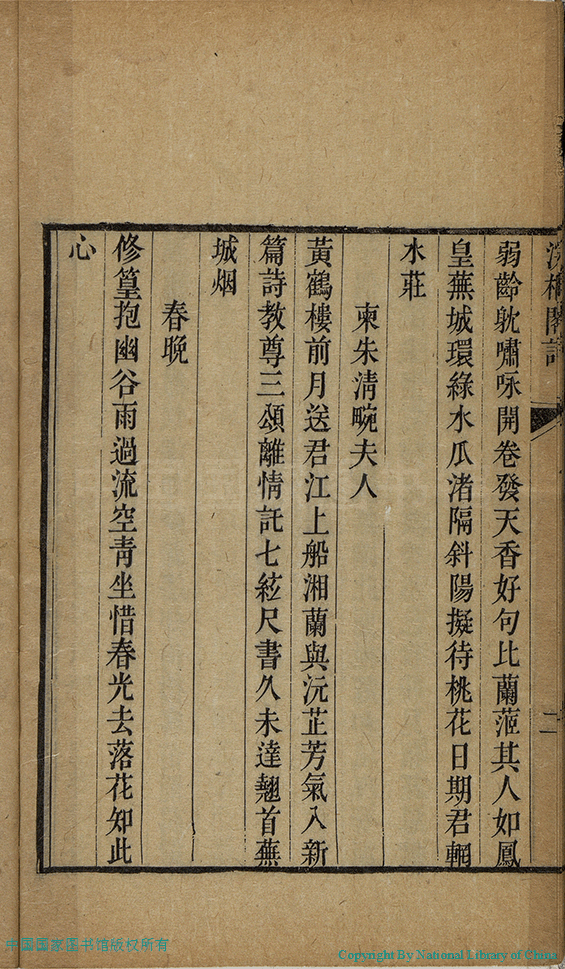 弱齡躭嘯咏開卷發天香好句比蘭茝其人如鳳
皇蕪城環綠水瓜渚隔斜陽擬待桃花日期君輞
水莊
柬朱清畹夫人
黃鶴樓前月送君江上船湘蘭與沅芷芳氣入新
篇詩教尊三頌離情託七絃尺書久未達翹首蕪
城烟
春晚
修篁抱幽谷雨過流空青坐惜春光去落花知此
心
二
中国国家图书馆版权所有
Copyright By National Library of China